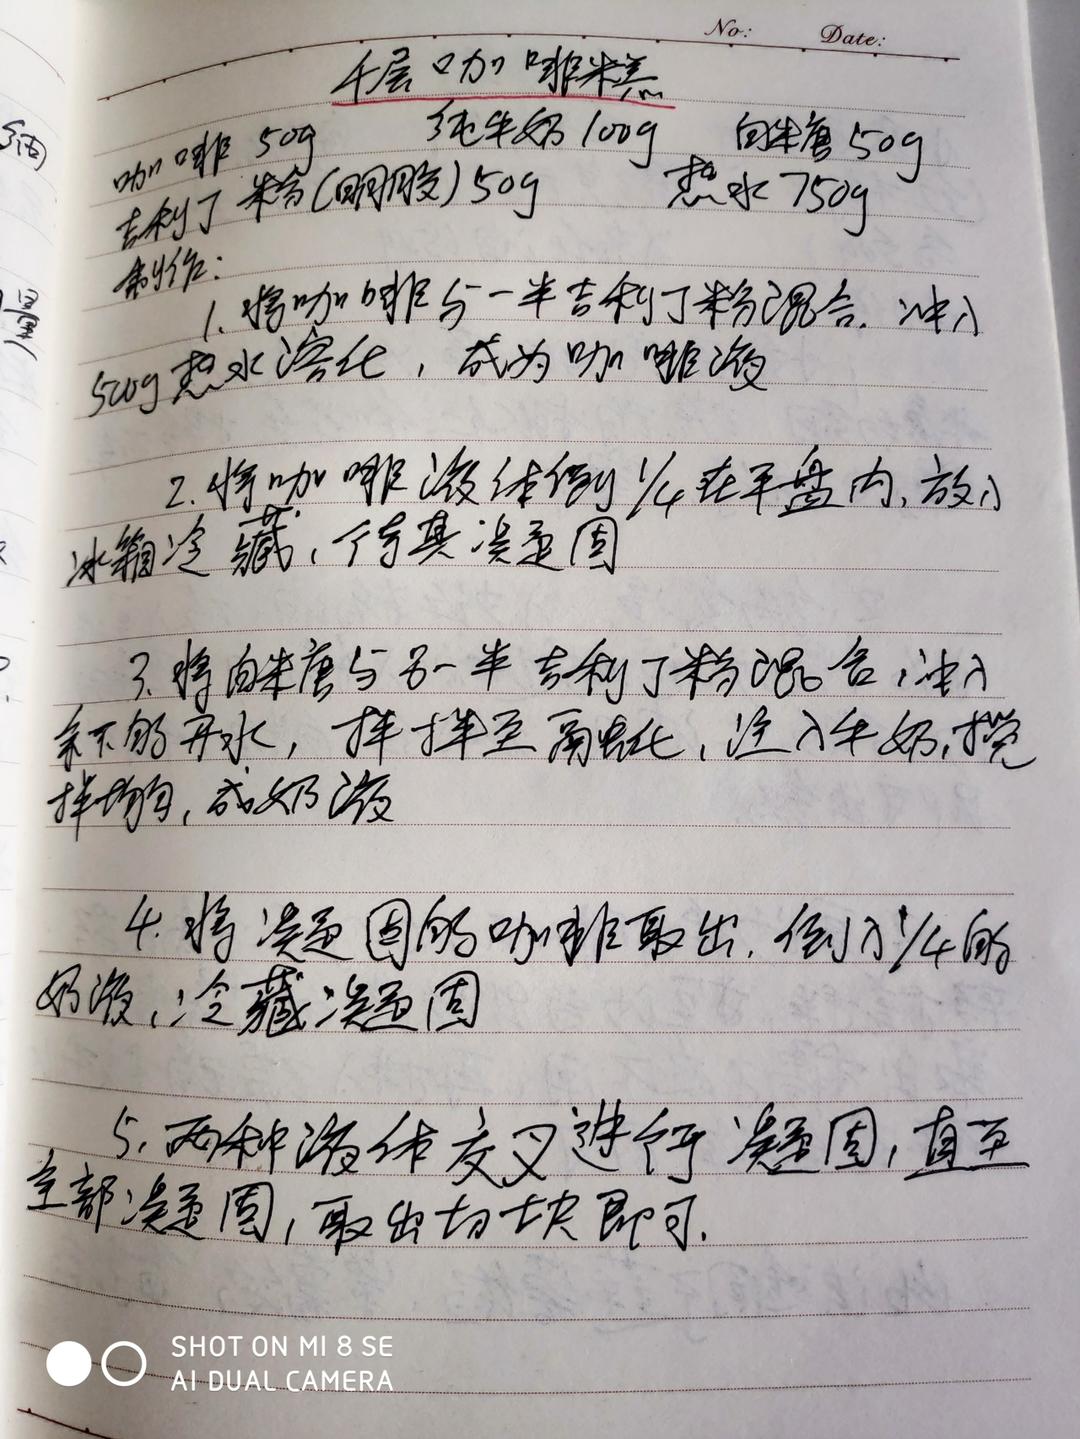 No:    Date:
千层咖啡糕
咖啡 50g  纯牛奶 100g  白糖 50g
吉利丁粉(明胶) 50g  热水 750g
制作:
1. 将咖啡与一半吉利丁粉混合. 冲入
500g热水溶化, 成为咖啡液
2. 将咖啡液体倒1/4在平盘内, 放入
冰箱冷藏, 待其凝固
3. 将白糖与另一半吉利丁粉混合, 冲入
余下的开水, 拌拌至融化, 注入牛奶, 搅
拌均匀, 成奶液
4. 将凝固的咖啡取出. 倒入1/4的
奶液, 冷藏凝固
5. 两种液体交叉进行凝固, 直至
全部凝固, 取出切块即可.
SHOT ON MI 8 SE
AI DUAL CAMERA